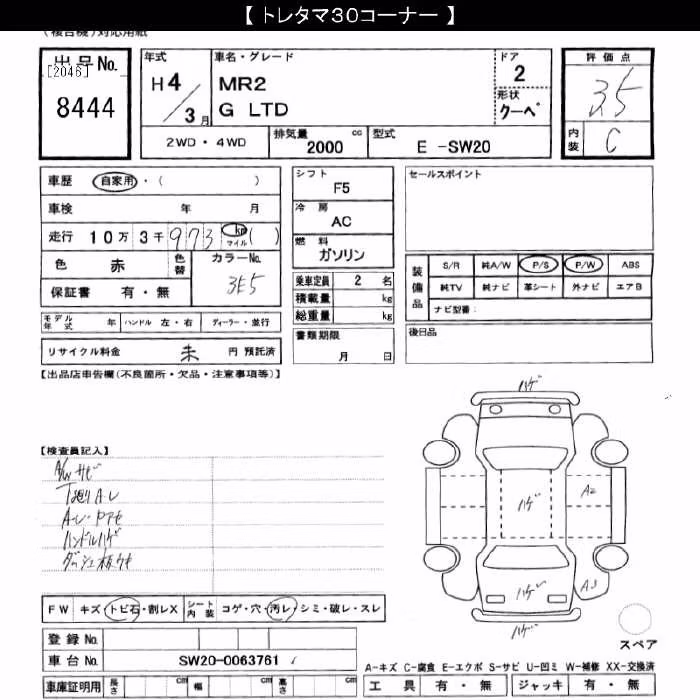 【 トレタマ30コーナー 】
(複合機)対応用紙
出品No.
[2046]
8444
年式
H4/3月
車名・グレード
MR2
G LTD
ドア
2
形状
クーペ
評価点
3.5
内装
C
2WD・4WD
排気量 2000 cc
型式 E -SW20
車歴 自家用・( )
車検 年 月
走行 10万3千973 km マイル ( )
色 赤
色替
カラーNo.
3E5
保証書 有・無
モデル年式 年 ハンドル 左・右 ディーラー・並行
リサイクル料金 未 円 預託済
シフト
F5
冷房
AC
燃料
ガソリン
乗車定員 2 名
積載量 kg
総重量 kg
書類期限
月 日
セールスポイント
装備品
S/R 純A/W P/S P/W ABS
純TV 純ナビ 革シート 外ナビ エアB
ナビ型番:
後日品
【出品店申告欄(不良箇所・欠品・注意事項等)】
【検査員記入】
A/W サビ
下廻りA・レ
ハンドルハゲ
ハゲ
ハゲ
A2
A3
ハゲ
ハゲ
スペア
FW キズ・トビ石・割レX シート内装 コゲ・穴・汚レ・シミ・破レ・スレ
登録No.
車台No. SW20-0063761
車庫証明用 長さ cm 幅 cm 高さ cm
A-キズ C-腐食 E-エクボ S-サビ U-凹ミ W-補修 XX-交換済
工具 有・無 ジャッキ 有・無